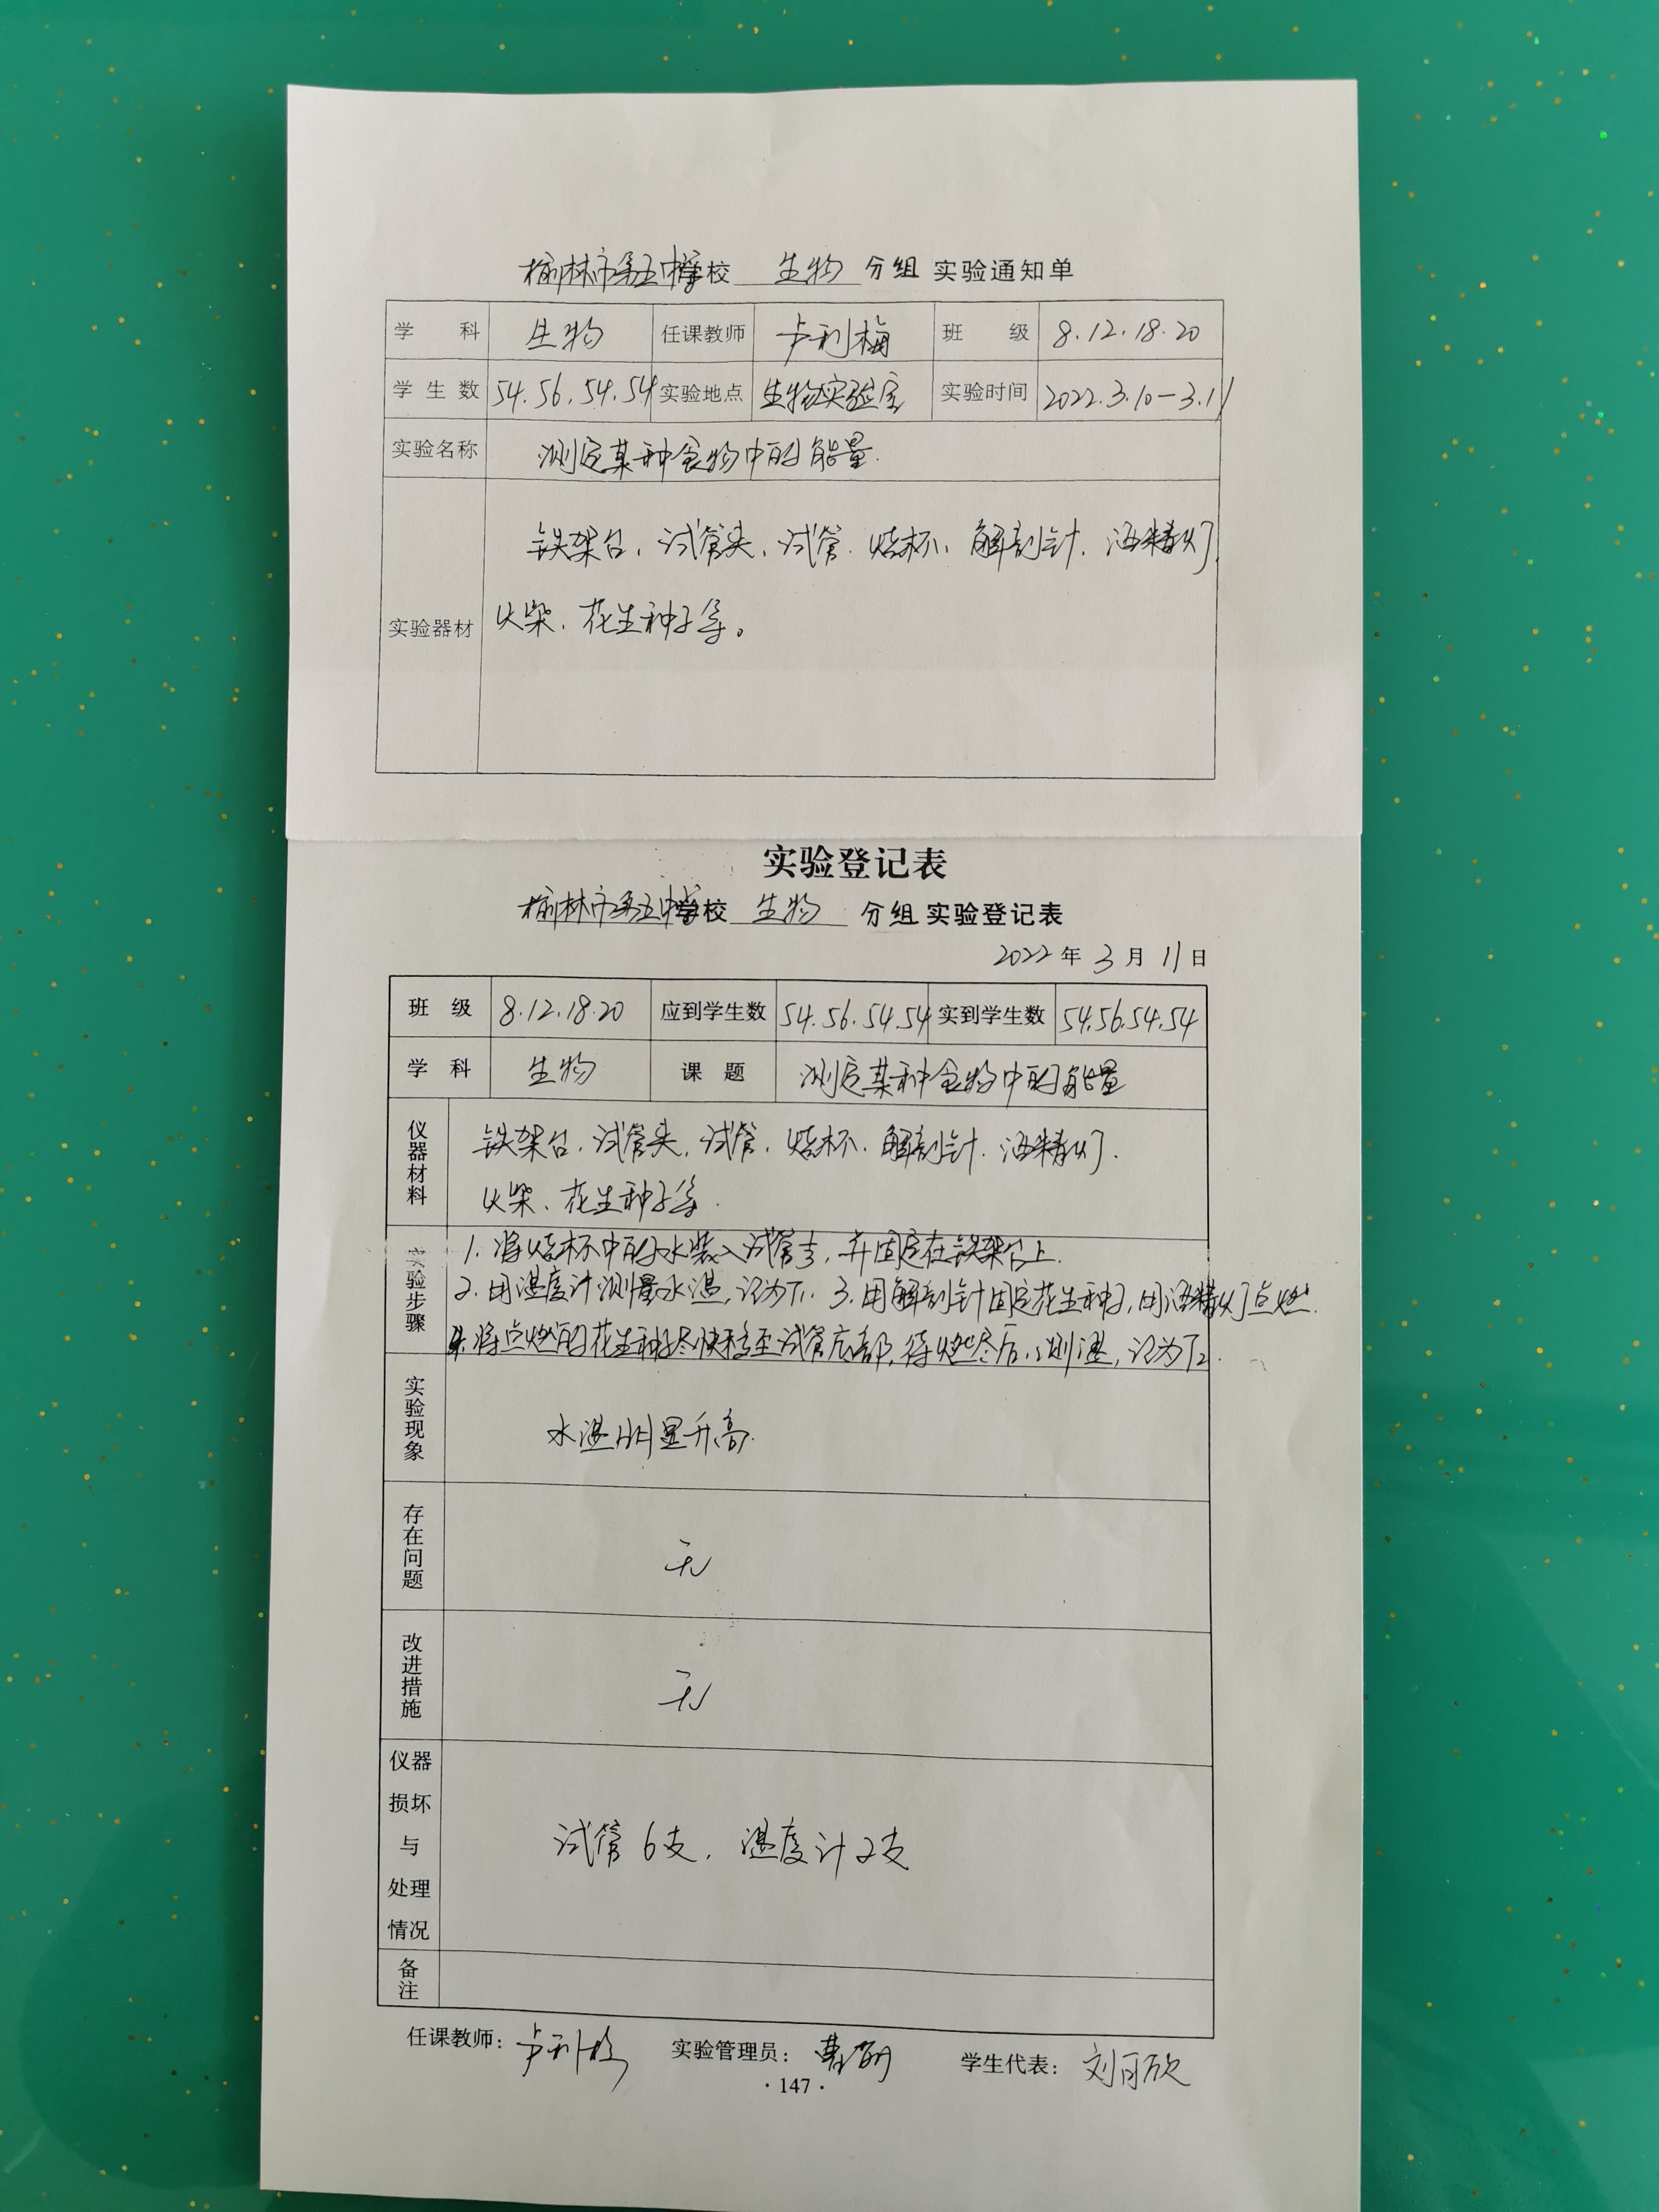 榆林市第五中学校 生物 分组 实验通知单
学 科 生物 任课教师 卢利梅 班 级 8.12.18.20
学 生 数 54.56.54.54 实验地点 生物实验室 实验时间 2022.3.10-3.11
实验名称 测定某种食物中的能量.
铁架台、试管夹、试管、烧杯、解剖针、酒精灯、
实验器材 火柴、花生种子等。
实验登记表
榆林市第五中学校 生物 分组 实验登记表
2022 年 3 月 11 日
班 级 8.12.18.20 应到学生数 54.56.54.54 实到学生数 54.56.54.54
学 科 生物 课 题 测定某种食物中的能量
仪器材料 铁架台、试管夹、试管、烧杯、解剖针、酒精灯、
火柴、花生种子等.
实验步骤 1. 将烧杯中的水装入试管中, 并固定在铁架台上.
2. 用温度计测量水温, 记为T1. 3. 用解剖针固定花生种子, 用酒精灯点燃.
4. 将点燃的花生种子尽快移至试管底部, 待燃尽后, 测温, 记为T2.
实验现象 水温明显升高.
存在问题 无
改进措施 无
仪器损坏与处理情况 试管6支, 温度计2支
备注
任课教师: 卢利梅 实验管理员: 曹 学生代表: 刘 欣
· 147 ·